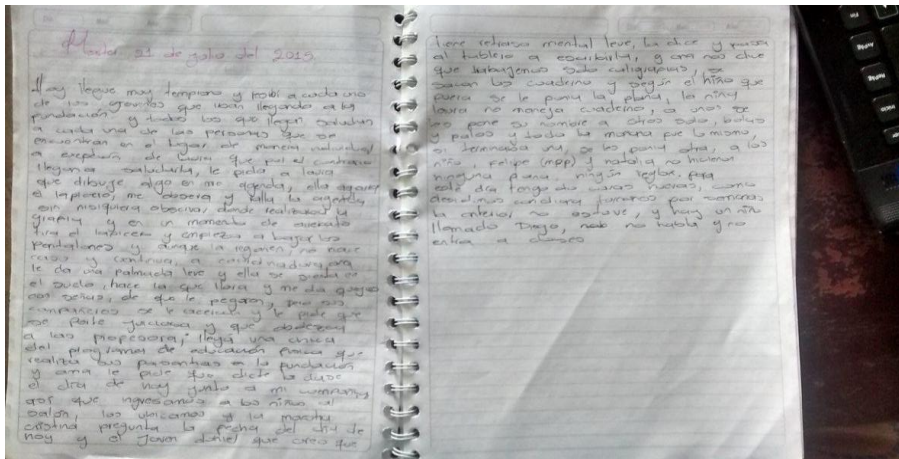 Martes 21 de julio del 2015
Hoy llegue muy temprano y recibi a cada uno
de los que iban llegando a la
fundación y todos los que llegan saludan
a cada una de las personas que se
encuentran en el lugar, de manera individual
a excepción de Laura que por el contrario
llegan a saludarla, le pido a Laura
que dibuje algo en mi agenda, ella agarra
el lapicero, me observa y ralla la agenda
sin nisiquiera observar, donde realizaba la
grafia y en un momento de
tira el lapicero y empieza a bajar los
pantalones y aunque la regañen, no hace
caso y continua, a ana
le da una palmada leve y ella se queda en
el suelo, hace la que llora y me da quejas
con señas, de que le pegaron, pero sus
compañeros se le acercan y le pide que
se porte juiciosa y que obedezca
a las profesora; llega una chica
del programa de educación fisica que
realiza sus pasantias en la fundación
y ana le pide que dicte la clase
el dia de hoy junto a mi
que ingresamos a los niños al
salón, los ubicamos y la
cristina pregunta la fecha del dia de
hoy y el joven daniel que creo que
tiene retraso mental leve, la dice y pasa
al tablero a escribirla, y ana nos dice
que trabajemos solo caligrafias, se
sacan los cuaderno y según el niño que
fuera se le ponia la plana, la niña
laura no maneja cuaderno, a unos se
les pone su nombre a otros solo, bolas
y palos y toda la mañana fue lo mismo,
si terminaba una, se les ponia otra, a los
niño, felipe (mpp) y natalia no hicieron
ninguna plana, ningún reglon, para
este dia tengo de caras nuevas, como
decidimos
la anterior, no estuve, y hay un niño
llamado Diego, no habla y no
entra a clases